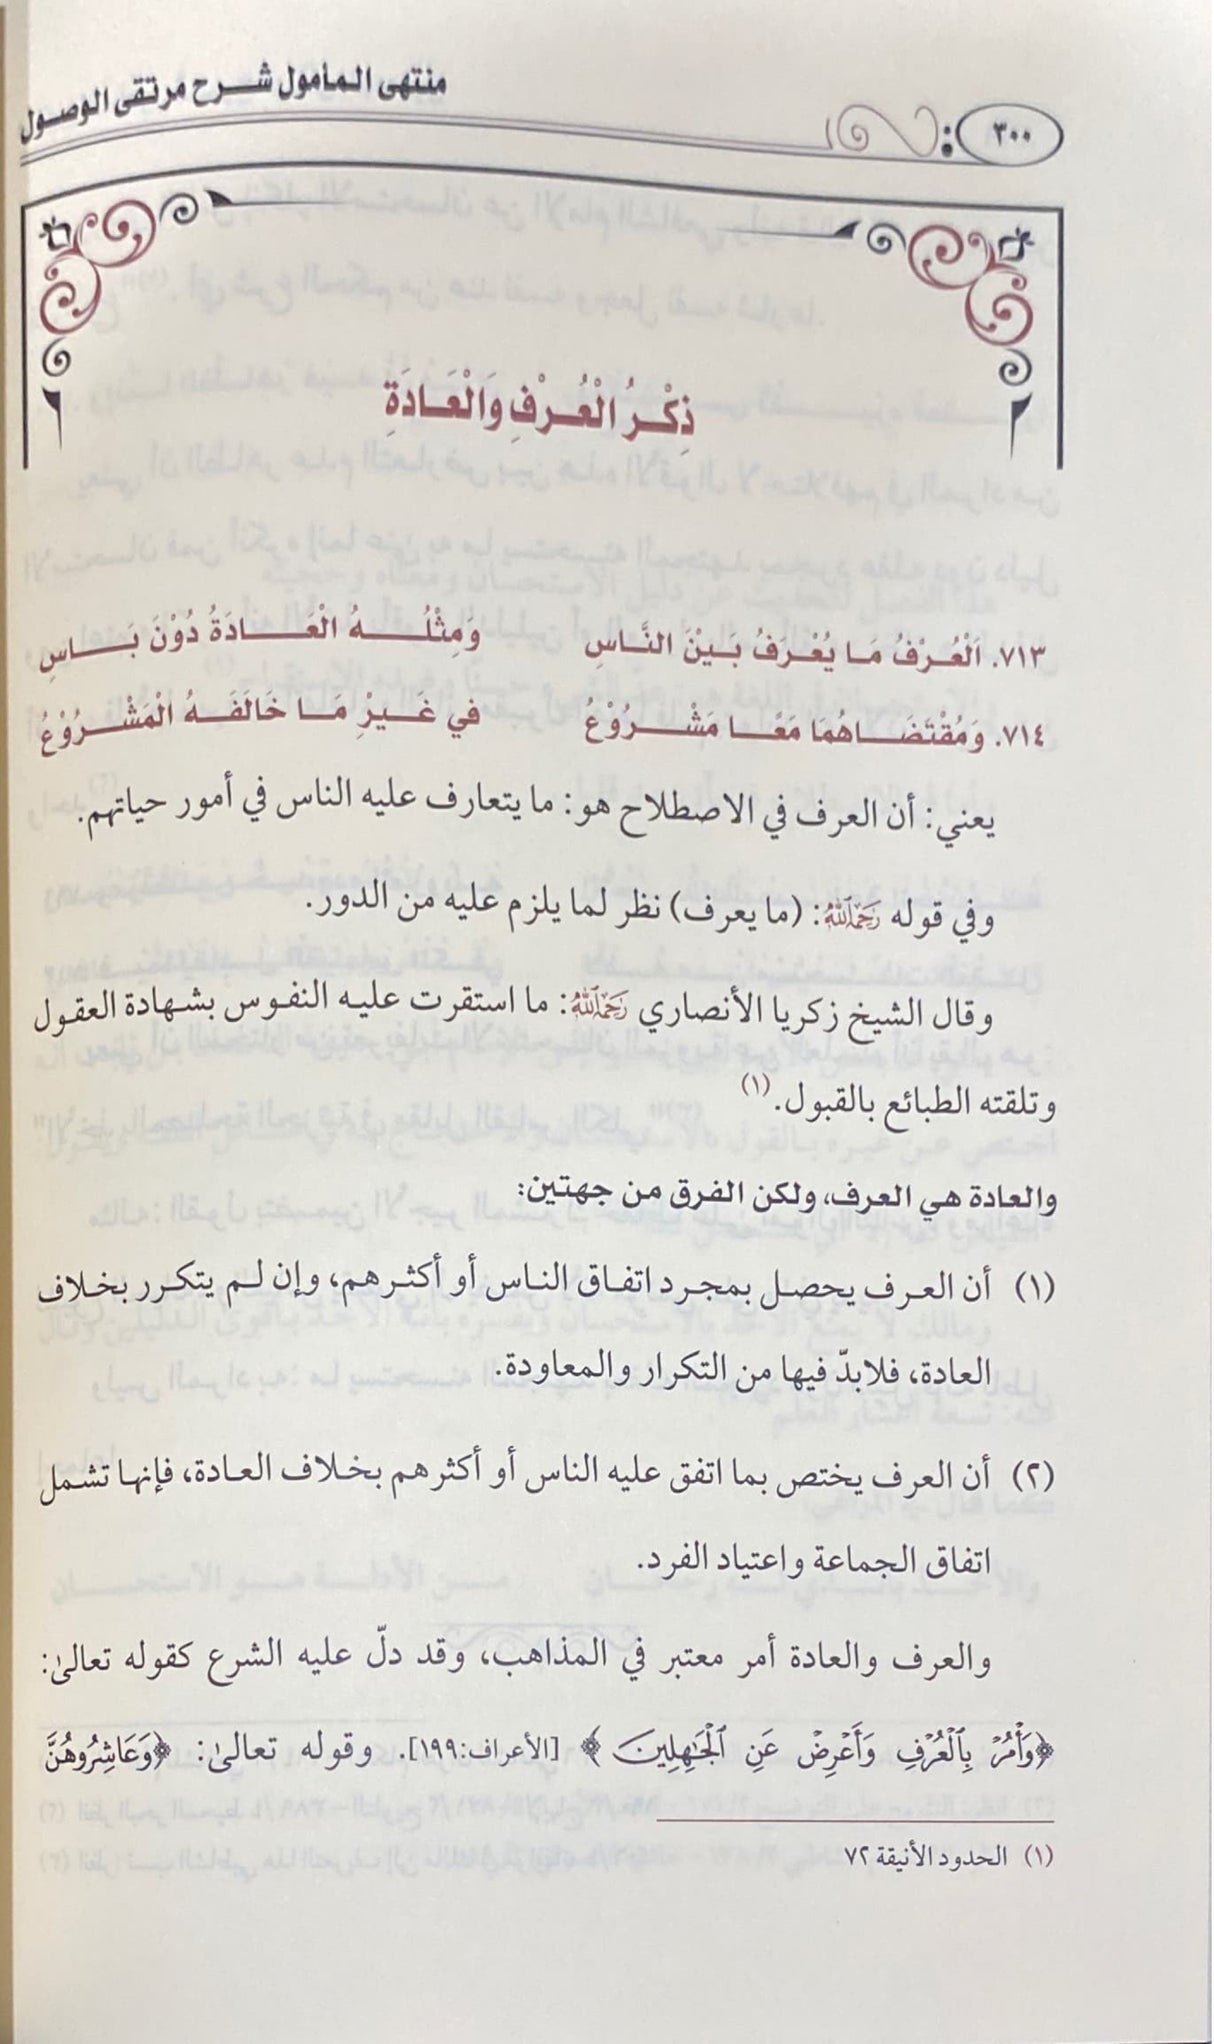 منتهى المأمول شرح مرتقى الوصول
٣٠٠
ذِكْرُ الْعُرْفِ وَالْعَادَةِ
٧١٣. اَلْعُرْفُ مَا يُعْرَفُ بَيْنَ النَّاسِ وَمِثْلُهُ الْعَادَةُ دُوْنَ بَاسِ
٧١٤. وَمُقْتَضَاهُمَا مَعًا مَشْرُوْعُ في غَيْرِ مَا خَالَفَهُ الْمَشْرُوْعُ
يعني: أن العرف في الاصطلاح هو: ما يتعارف عليه الناس في أمور حياتهم.
وفي قوله رَحِمَهُ ٱللَّهُ: (ما يعرف) نظر لما يلزم عليه من الدور.
وقال الشيخ زكريا الأنصاري رَحِمَهُ ٱللَّهُ: ما استقرت عليه النفوس بشهادة العقول
وتلقته الطبائع بالقبول.(١)
والعادة هي العرف، ولكن الفرق من جهتين:
(١) أن العرف يحصل بمجرد اتفاق الناس أو أكثرهم، وإن لم يتكرر بخلاف
العادة، فلابدّ فيها من التكرار والمعاودة.
(٢) أن العرف يختص بما اتفق عليه الناس أو أكثرهم بخلاف العادة، فإنها تشمل
اتفاق الجماعة واعتياد الفرد.
والعرف والعادة أمر معتبر في المذاهب، وقد دلّ عليه الشرع كقوله تعالىٰ:
﴿وَأْمُرْ بِٱلْعُرْفِ وَأَعْرِضْ عَنِ ٱلْجَٰهِلِينَ﴾ [الأعراف:١٩٩]. وقوله تعالىٰ: ﴿وَعَاشِرُوهُنَّ
(١) الحدود الأنيقة ٧٢